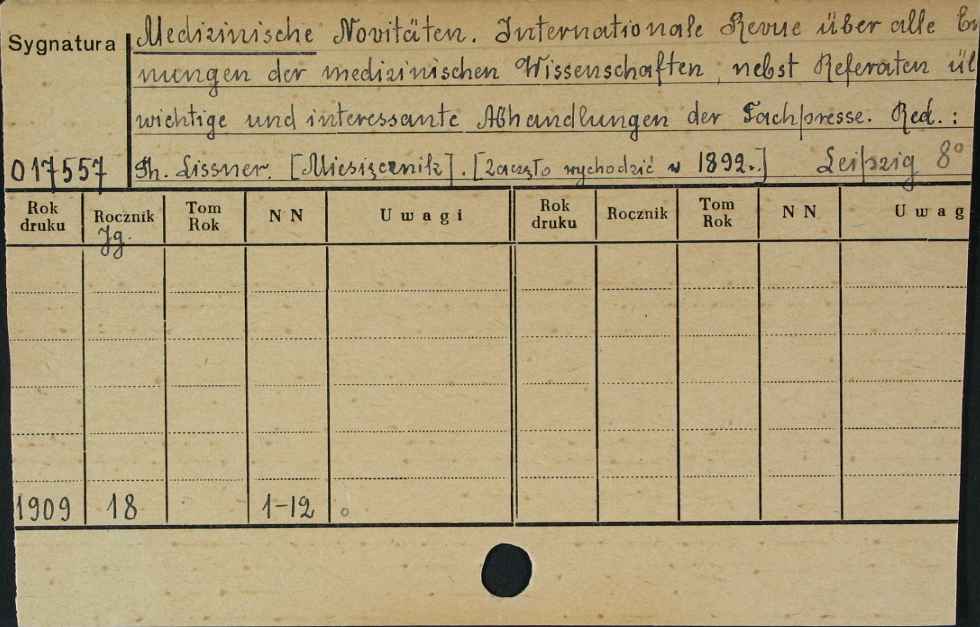 Sygnatura
Medizinische Novitäten. Internationale Revue über alle
nungen der medizinischen Wissenschaften, nebst Referaten ü
wichtige und interessante Abhandlungen der Fachpresse. Red.:
017557 Th. Lissner. [Miesięcznik]. [Zaczęło wychodzić w 1892.] Leipzig 8°
Rok druku Rocznik Jg. Tom Rok N N Uwagi Rok druku Rocznik Tom Rok N N Uwag
1909 18 1-12